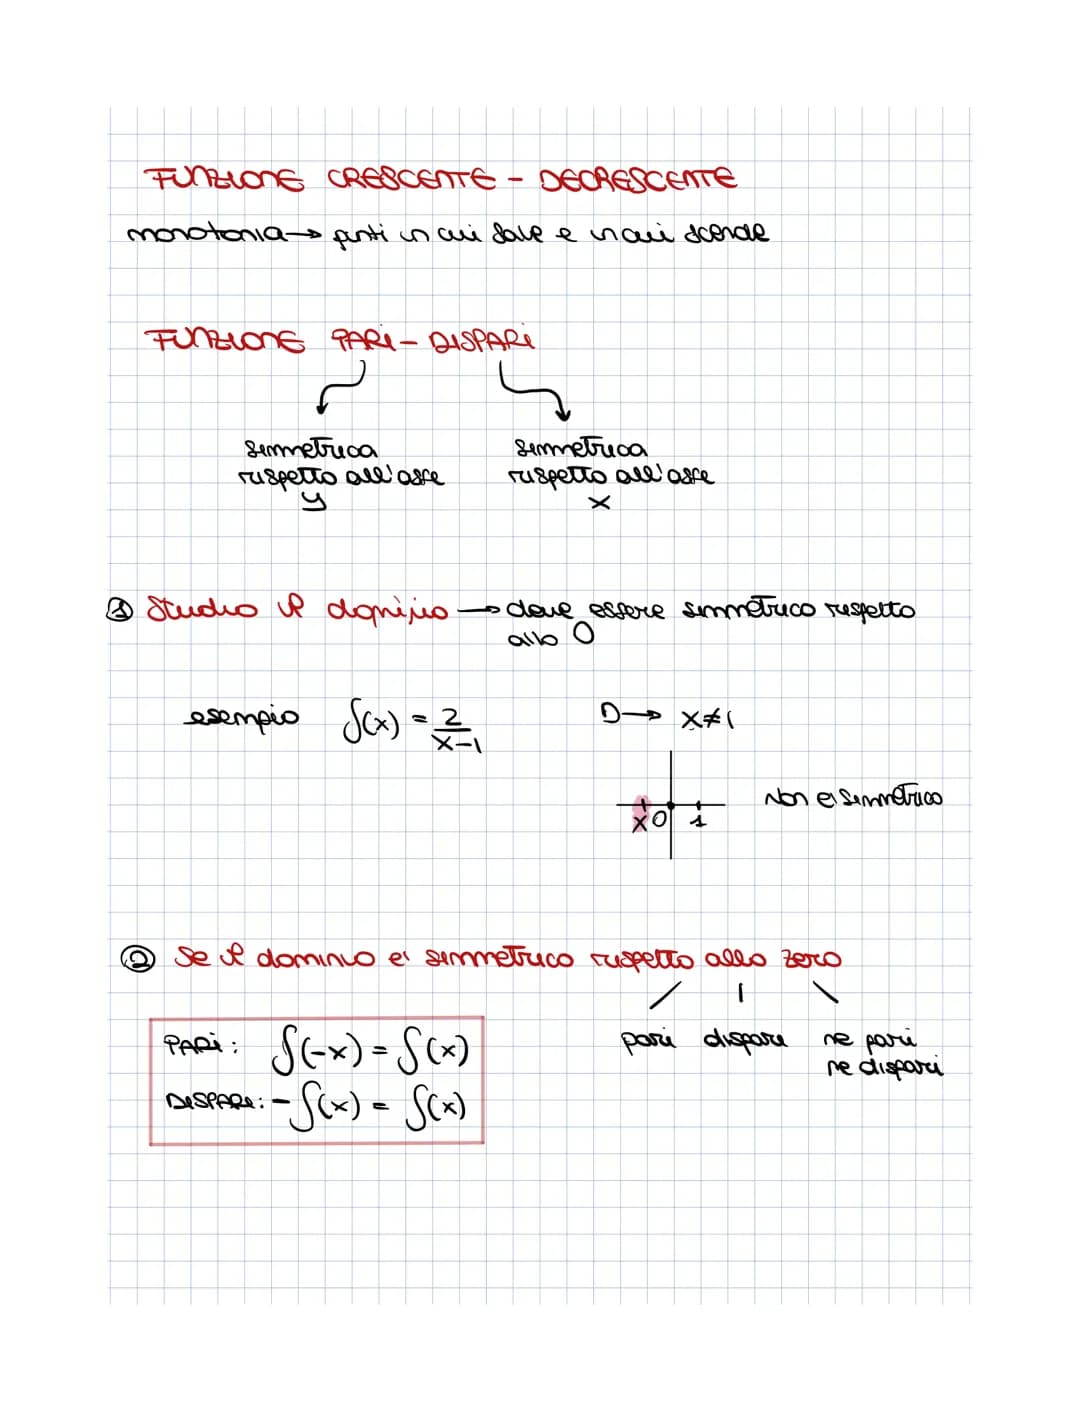 FUNZIONE CRESCENTE - DECRESCENTE
monotonia → punti in cui sale e in cui scende
FUNZIONE PARI - DISPARI
simmetrica
rispetto all'asse
y
simmetrica
rispetto all'asse
x
① Studio il dominio → deve essere simmetrico rispetto
allo 0
esempio f(x) = 2/x-1 D → x≠1
x 0 1
Non è simmetrico
② Se il dominio è simmetrico rispetto allo zero
pari dispari ne pari
ne dispari
PARI: f(-x) = f(x)
DISPARI: -f(x) = f(x)